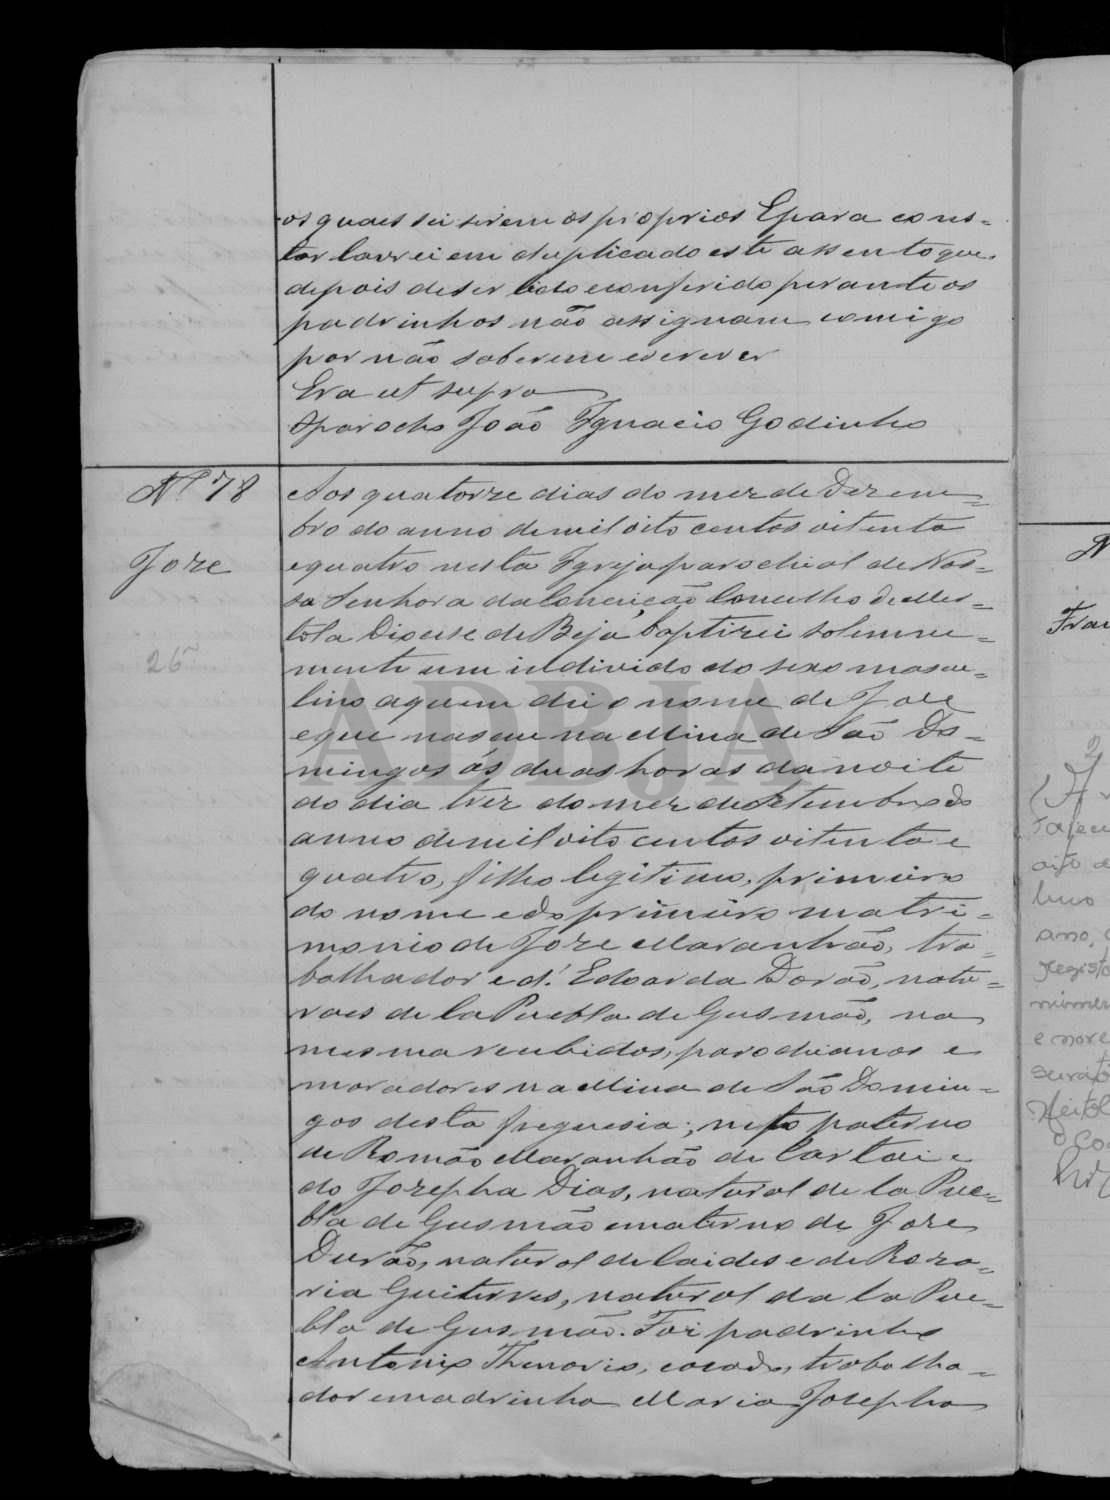 os quaes sei serem os proprios E para cons=
tar lavrei em duplicado este assento que
depois de ser lido e conferido perante os
padrinhos não assignam comigo
por não saberem escrever
Era ut supra
O parocho João Ignacio Godinho
Nº 78
Joze
26
Aos quatorze dias do mez de Dezem=
bro do anno de mil oito centos oitenta
e quatro nesta Igreja parochial de Nos=
sa Senhora da Conceição Concelho de Mer=
tola Diocese de Beja baptizei solemne=
mente um individo do sexo mascu=
lino a quem dei o nome de Joze
e que nasceu na Mina de São Do=
mingos ás duas horas da noite
do dia trez do mez de Setembro do
anno de mil oito centos oitenta e
quatro, filho legitimo, primeiro
do nome e do primeiro matri=
monio de Joze Maranhão, tra=
balhador e d'. Edoarda Dorão, natu=
raes de la Puebla de Gusmão, na
mesma recebidos, parochianos e
moradores na Mina de São Domin=
gos desta freguesia; neto paterno
de Romão Maranhão de Cartai e
do Jozepha Dias, natural de la Pue=
bla de Gusmão e materno de Joze
Durão, natural de Caides e de Roza=
ria Guiterres, natural da la Pue=
bla de Gusmão. Foi padrinho
Antonio Thenorio, casado, trabalha=
dor e madrinha Maria Josepha
ADBJA
N
Fran
2
ano,
Regist
numer
e nove